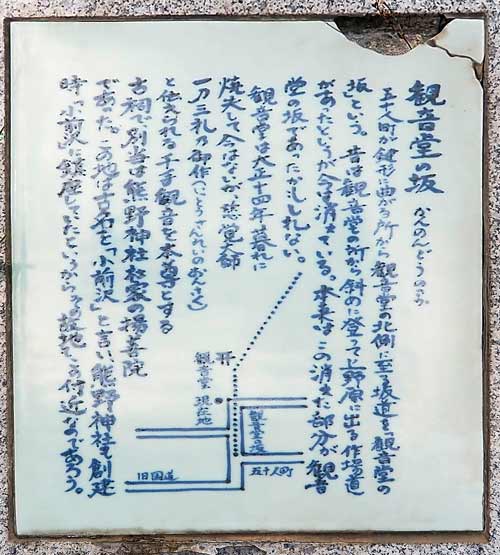 観音堂の坂
かんのんどうのさか
五十人町が鍵形に曲がる所から観音堂の北側に至る坂道を観音堂の
坂という。昔は観音堂の所から斜めに登って上野原に出る作場道
があったというが今は消えている。本来はこの消えた部分が観音
堂の坂であったかもしれない。
観音堂は大正十四年暮れに
焼失して今はないが慈覚大師
一刀三礼の御作(いっとうさんれいのおんさく)
と伝えられる千手観音を本尊とする
古祠で別当は熊野神社社家の揚善院
であった。この地は古名を「小前沢」と言い熊野神社も創建
時「小前沢」に鎮座していたというからその故地もこの付近なのであろう。
観音堂
現在地
観音堂の坂
旧国道
五十人町